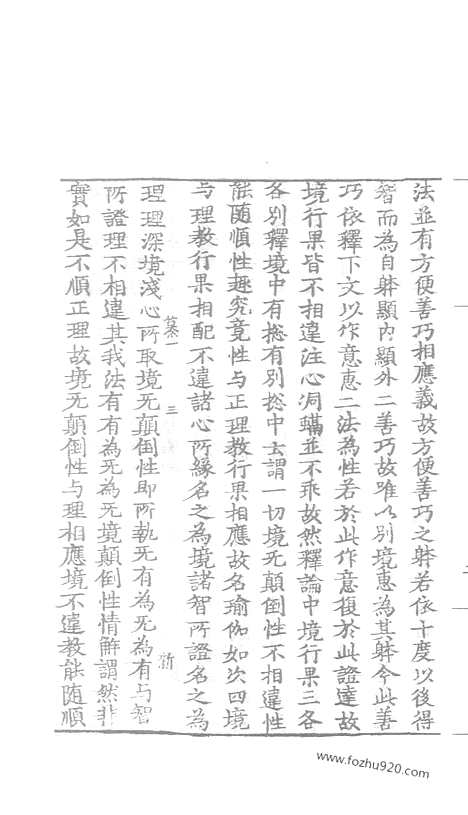 法並有方便善巧相應義故方便善巧之躰若依十度以後得
智而為自躰顯內顯外二善巧故雖以別境惠為其躰今此善
巧依釋下文以作意惠二法為性若於此作意復於此證達故
境行果皆不相違注心凋蟎並不乖故然釋論中境行果三各
各別釋境中有揔有別揔中云謂一切境无顛倒性不相違性
能隨順性趣究竟性与正理教行果相應故名瑜伽如次四境
与理教行果相配不違諸心所緣名之為境諸智所證名之為
理理深境淺心所取境无顛倒性即所執无有為无為有与智
所證理不相違其我法有有為无為无境顛倒性情解謂然非
實如是不順正理故境无顛倒性与理相應境不違教能隨順
三
新
www.fozhu920.com